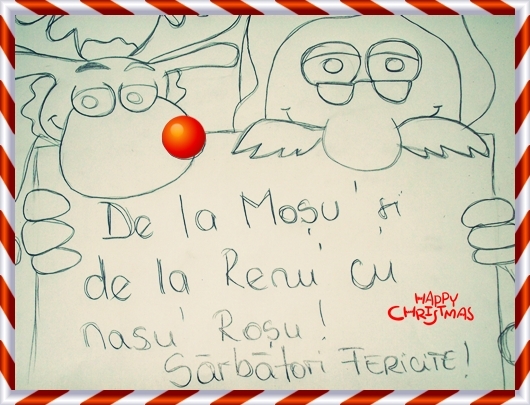 De la Moșu' și
de la Renu' cu
nasu' Roșu!
Sărbători FERICITE!
HAPPY
CHRISTMAS